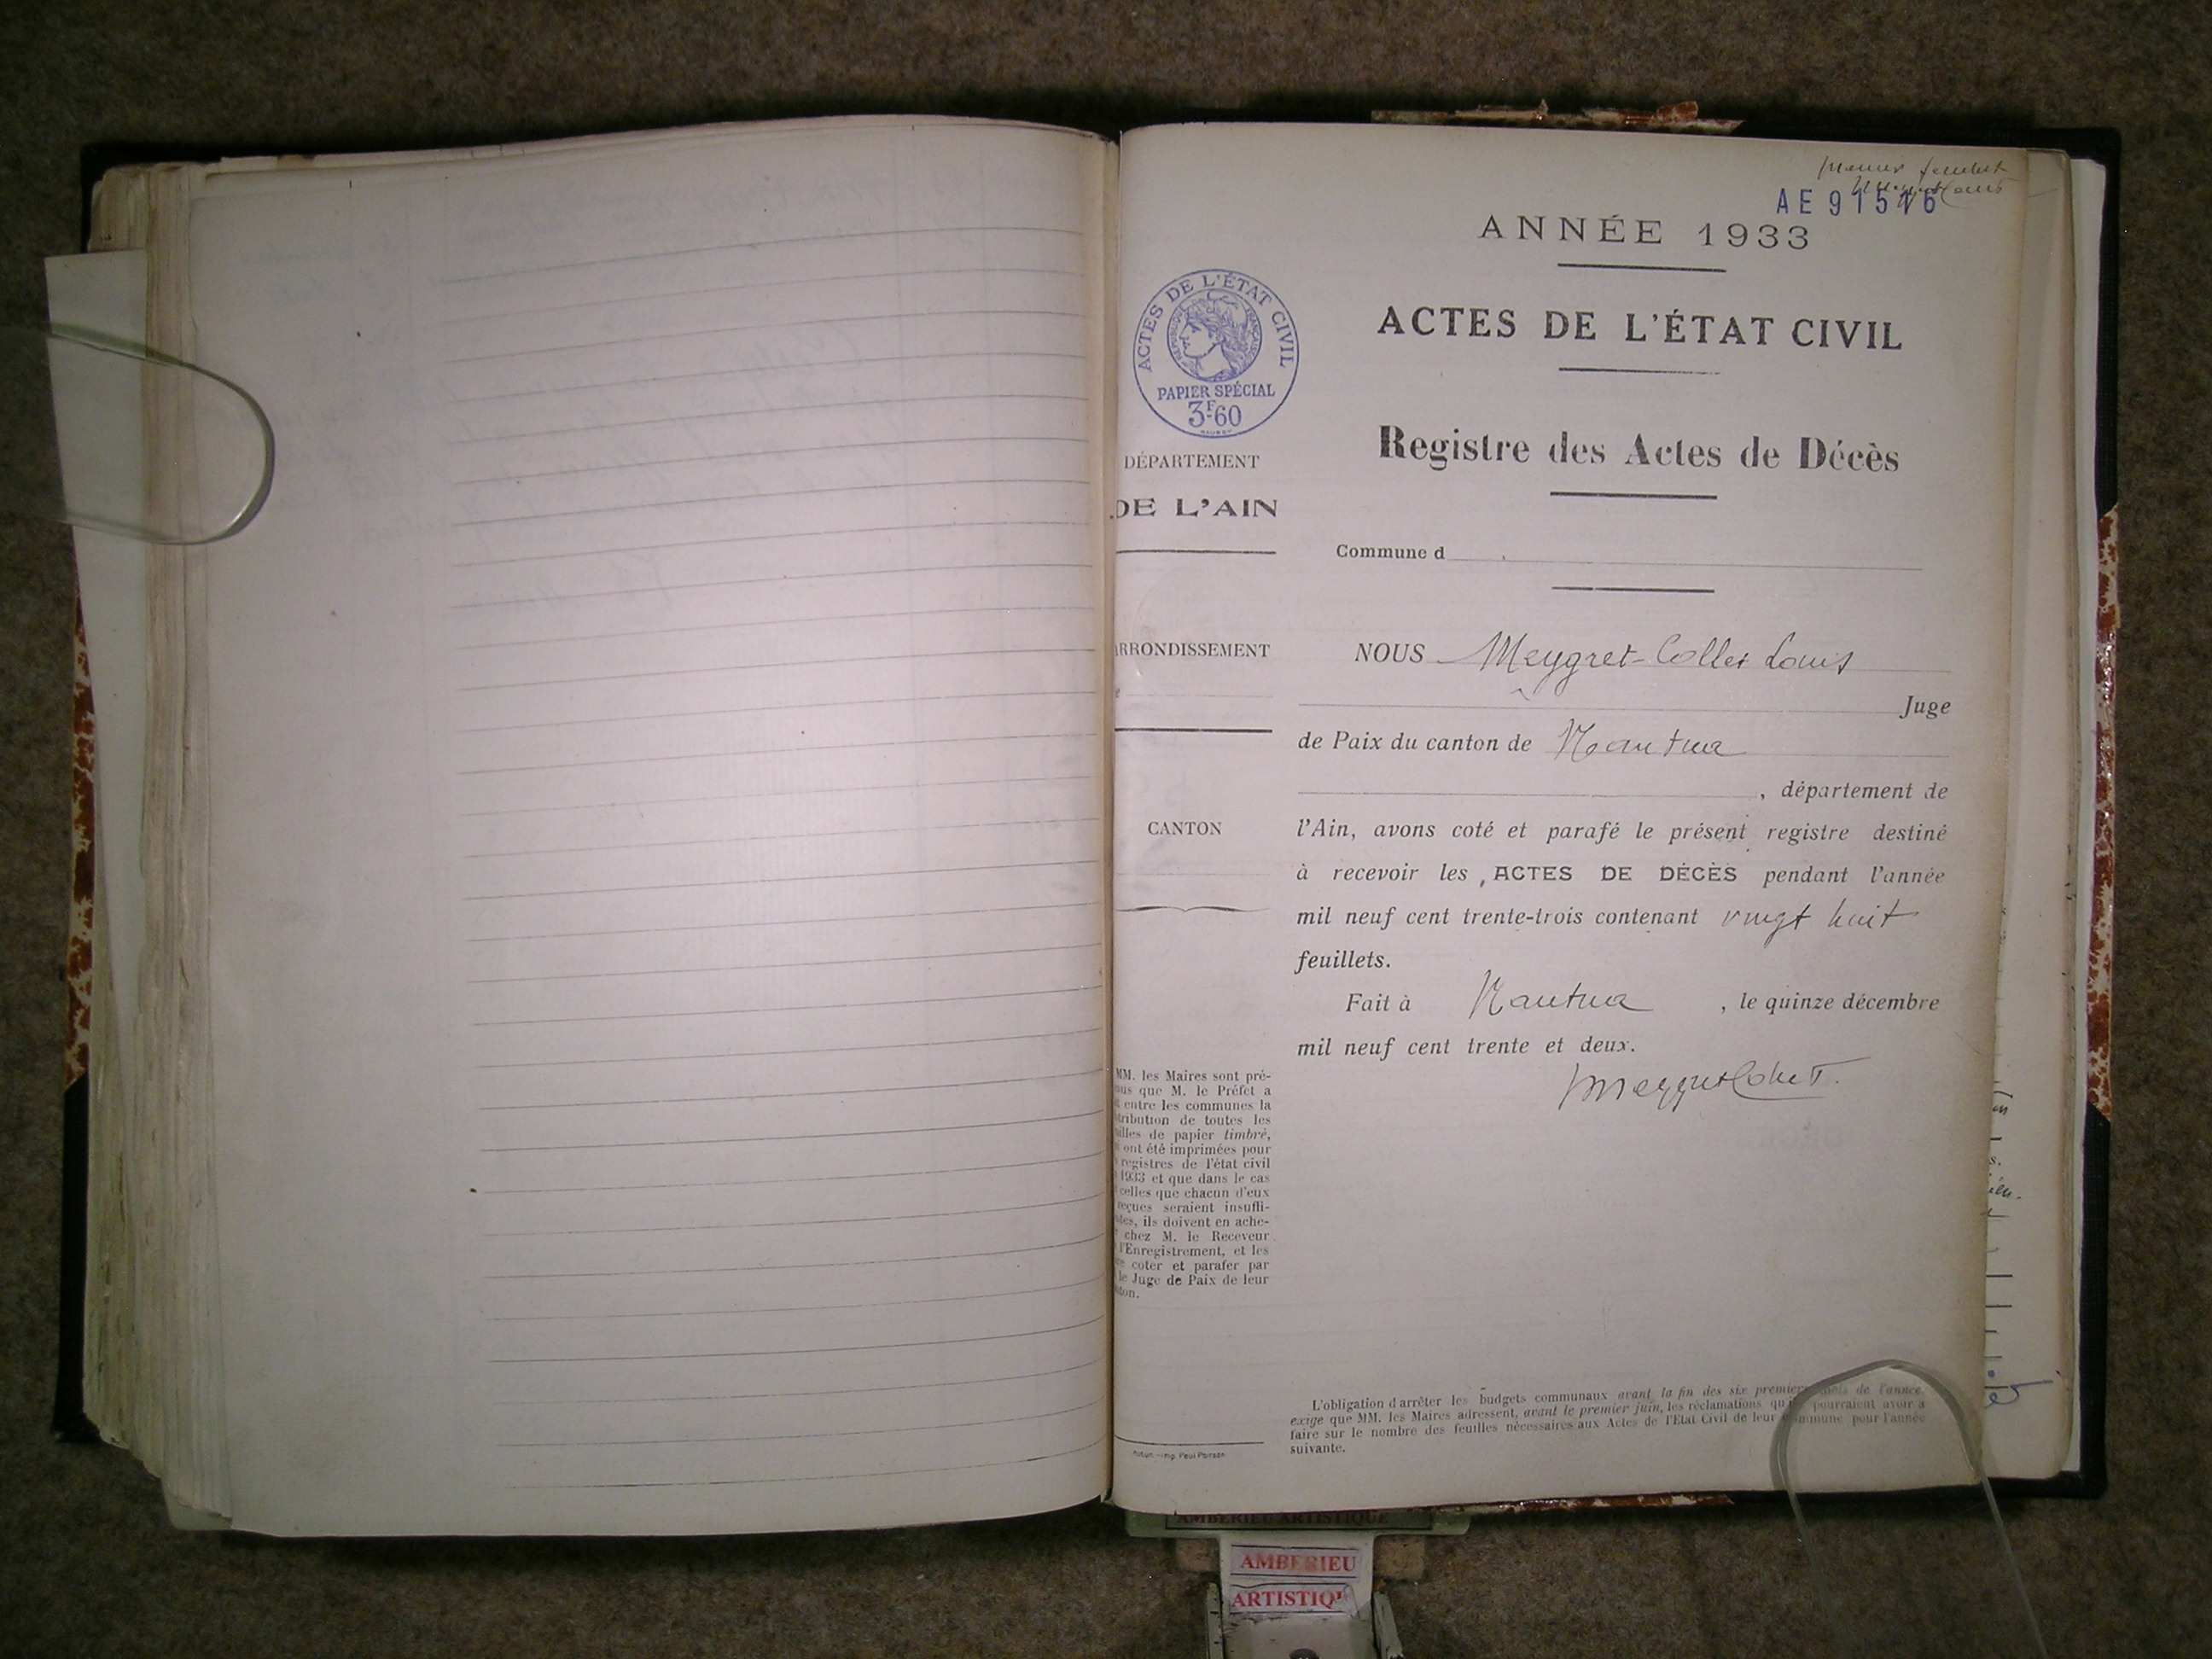 premier feuillet
AE 91516
ANNÉE 1933
ACTES DE L'ÉTAT CIVIL
RÉPUBLIQUE FRANÇAISE
PAPIER SPÉCIAL
3F60
ACTES DE L'ÉTAT CIVIL
Registre des Actes de Décès
DÉPARTEMENT
DE L'AIN
Commune d
ARRONDISSEMENT
NOUS Meygret-Collet Louis
Juge
de Paix du canton de Nantua
, département de
CANTON
l'Ain, avons coté et parafé le présent registre destiné
à recevoir les ACTES DE DÉCÈS pendant l'année
mil neuf cent trente-trois contenant vingt huit
feuillets.
Fait à Nantua , le quinze décembre
mil neuf cent trente et deux.
MeygretCollet
MM. les Maires sont pré-
nus que M. le Préfet a
entre les communes la
tribution de toutes les
uilles de papier timbré,
ont été imprimées pour
registres de l'état civil
1933 et que dans le cas
celles que chacun d'eux
reçues seraient insuffi-
tes, ils doivent en ache-
chez M. le Receveur
l'Enregistrement, et les
re coter et parafer par
le Juge de Paix de leur
nton.
L'obligation d'arrêter les budgets communaux avant la fin des six premiers mois de l'année,
exige que MM. les Maires adressent, avant le premier juin, les réclamations qu'ils pourraient avoir à
faire sur le nombre des feuilles nécessaires aux Actes de l'Etat Civil de leur commune pour l'année
suivante.
Imp. Paul Poirson
AMBERIEU ARTISTIQUE
AMBERIEU
ARTISTIQU